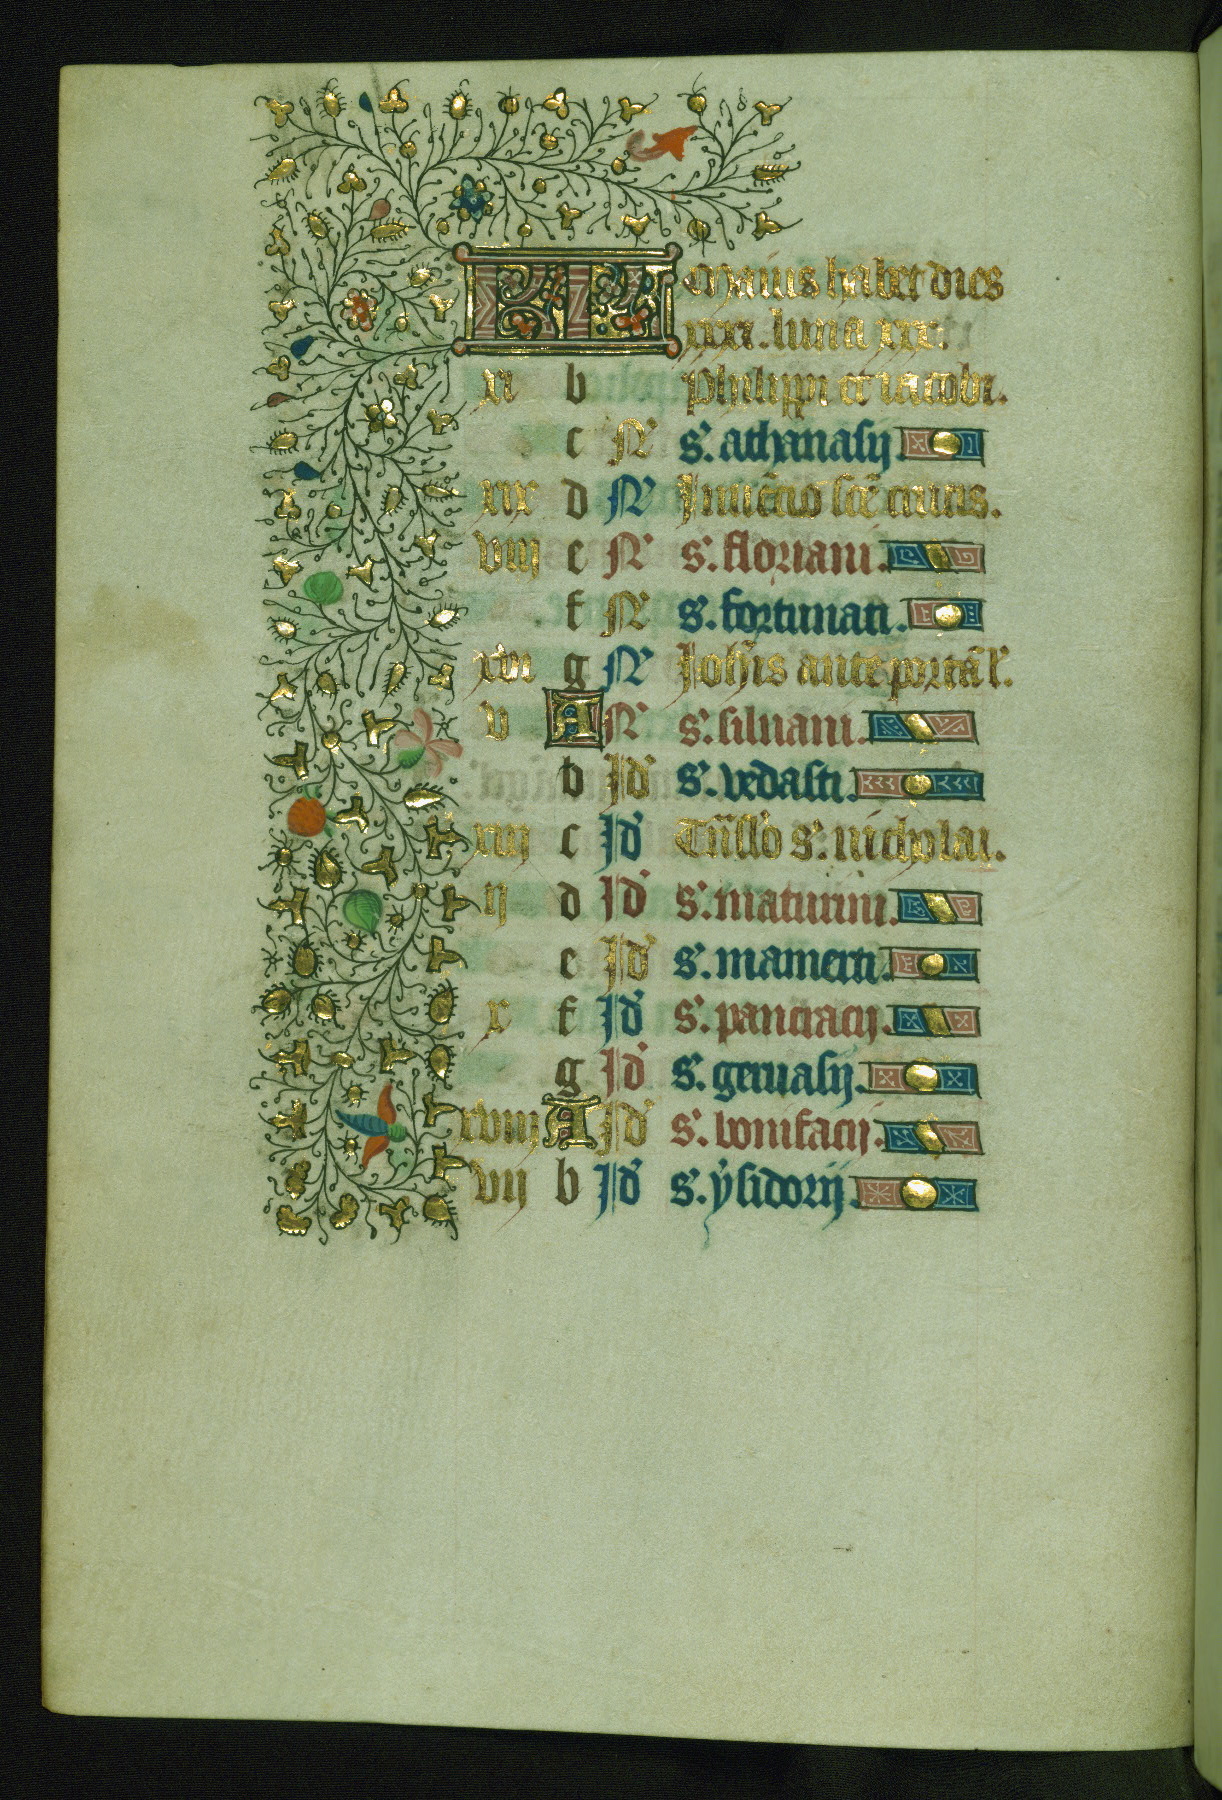 KL Mayus habet dies
xxxi. luna xxx.
xi b Philippi et iacobi.
c N s'. athanasij.
xix d N Inuētio scē crucis.
viij e N s'. floriani.
f N s'. fortunati.
xvi g N Joh̄is ante portā l'.
v A N s'. siluani.
b Id s'. vedasti.
xiij c Id Trāslō s'. nicholai.
ij d Id s'. maturini.
e Id s'. mamerti.
x f Id s'. pancracij.
g Id s'. geruasij.
xviij A Id s'. bonifacij.
vij b Id s'. ysidorij.